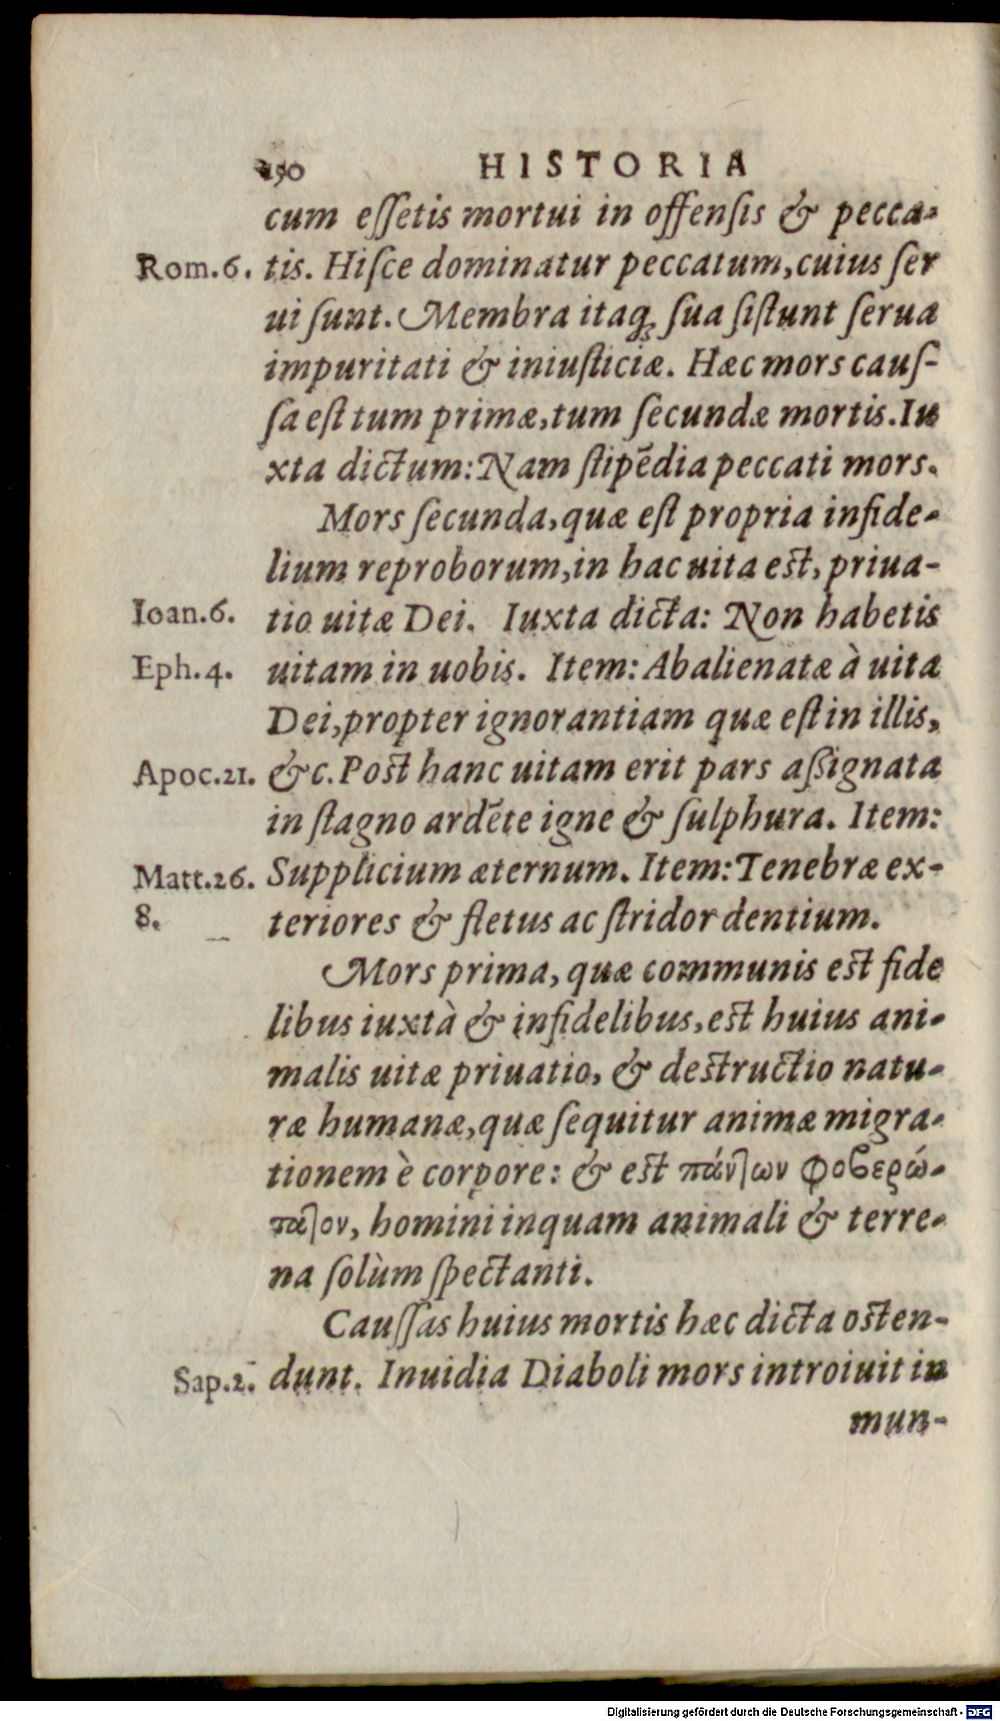 150 HISTORIA
cum eſſetis mortui in offenſis & pecca-
Rom.6. tis. Hiſce dominatur peccatum, cuius ſer
ui ſunt. Membra itaq; ſua ſiſtunt ſerua
impuritati & iniuſticiæ. Hæc mors cauſ-
ſa eſt tum primæ, tum ſecundæ mortis. Iu
xta dictum: Nam ſtipẽdia peccati mors.
Mors ſecunda, quæ eſt propria infide-
lium reproborum, in hac uita est, priua-
Ioan.6. tio uitæ Dei. Iuxta dicta: Non habetis
Eph.4. uitam in uobis. Item: Abalienatæ à uita
Dei, propter ignorantiam quæ eſt in illis,
Apoc.21. &c. Post hanc uitam erit pars aſsignata
in ſtagno ardẽte igne & ſulphura. Item:
Matt.26. Supplicium æternum. Item: Tenebræ ex-
8. teriores & fletus ac ſtridor dentium.
Mors prima, quæ communis est fide
libus iuxtà & infidelibus, est huius ani-
malis uitæ priuatio, & destructio natu-
ræ humanæ, quæ ſequitur animæ migra-
tionem è corpore: & est πάντων φοβερώ-
τατον, homini inquam animali & terre-
na ſolùm ſpectanti.
Cauſſas huius mortis hæc dicta osten-
Sap.2. dunt. Inuidia Diaboli mors introiuit in
mun-
Digitalisierung gefördert durch die Deutsche Forschungsgemeinschaft - DFG